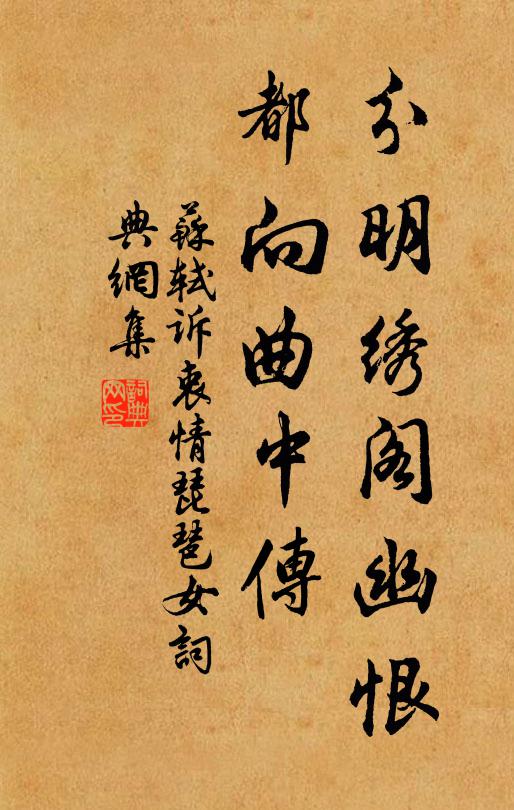 分明绣阁幽恨
都向曲中傳
蘇軾诉衷情琵琶女詞
典網集
詞典
网印